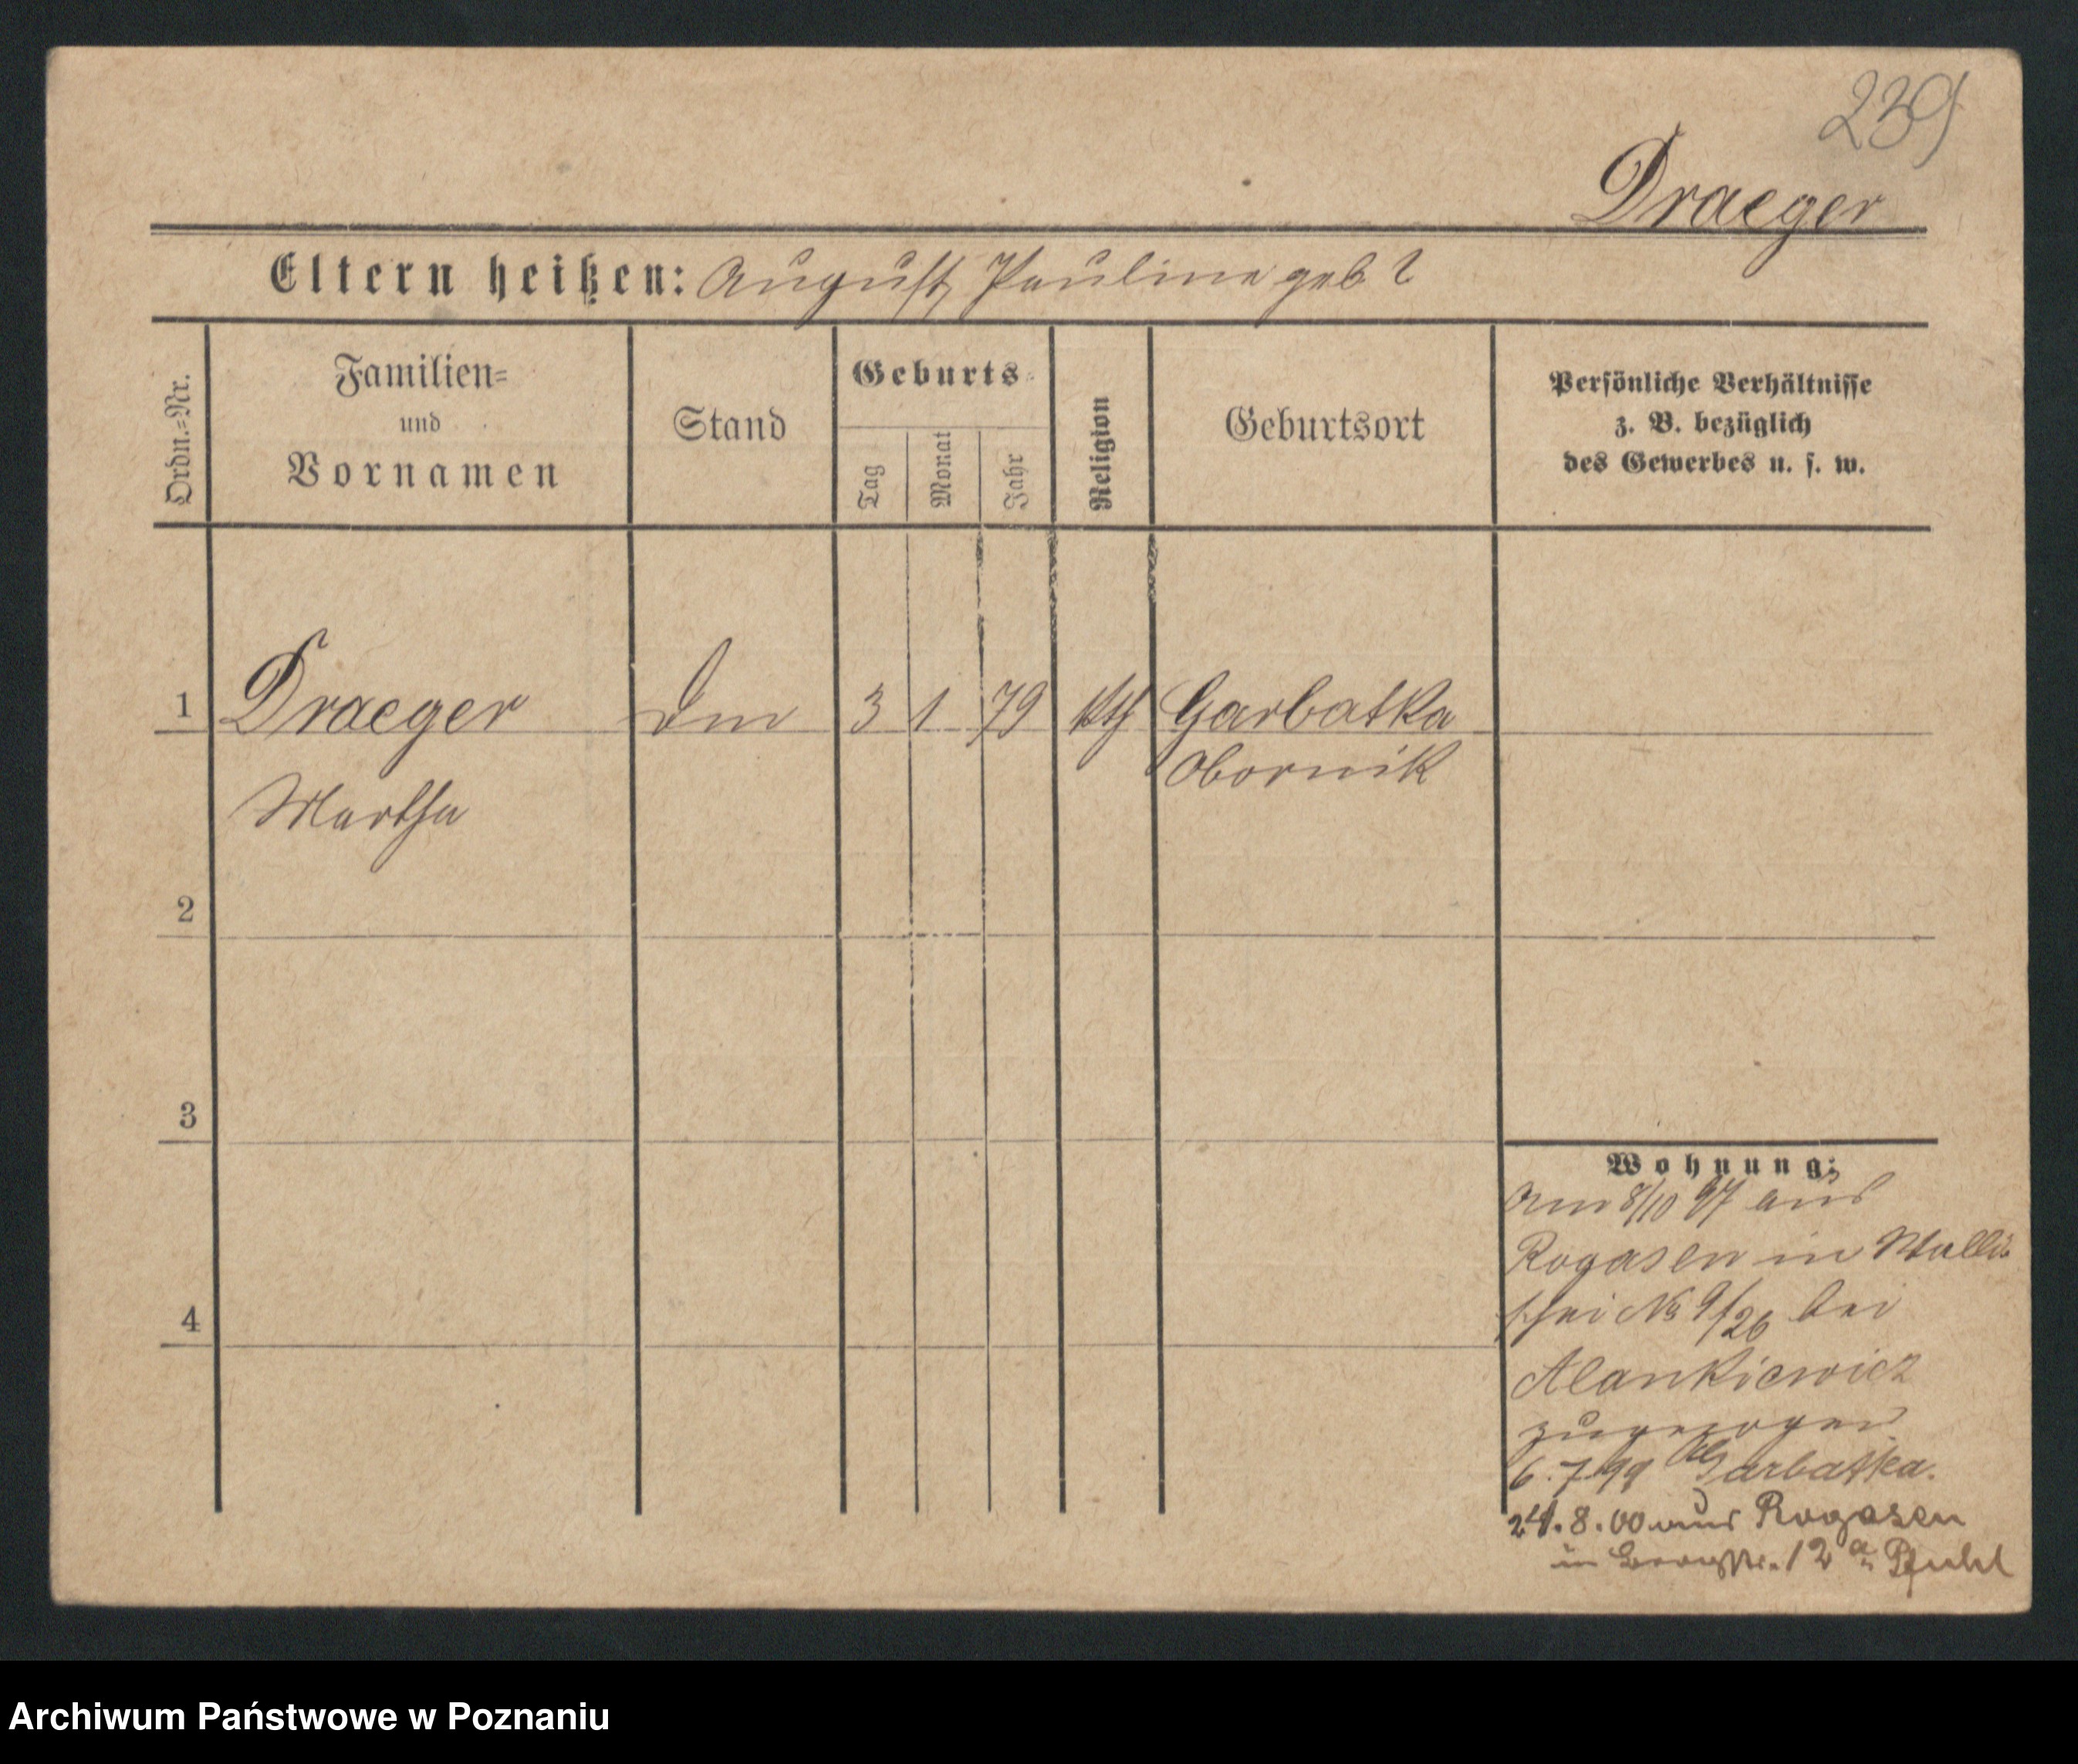 239
Draeger
Eltern heißen: August, Pauline geb ?
Ordn.=Nr.
Familien=
und
Vornamen
Stand
Geburts=
Tag
Monat
Jahr
Religion
Geburtsort
Persönliche Verhältnisse
z. B. bezüglich
des Gewerbes u. s. w.
1 Draeger 3 1 79 kth Garbatka
Obornik
Martha
2
3
4
Wohnung:
Am 8/10 97 aus
Rogasen in Walli
schei No 9/26 bei
Alankiewicz
zugezogen
6.7.99 Garbatka.
24.8.00 aus Rogasen
in Bergstr. 12a Pfuhl
Archiwum Państwowe w Poznaniu